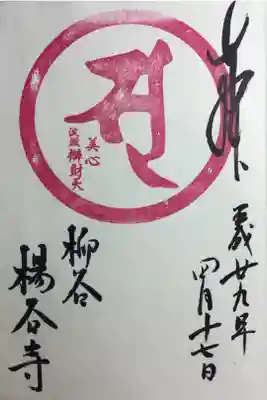 奉拝
平成廿九年
四月十七日
美心
洗眼辨財天
柳谷
楊谷寺